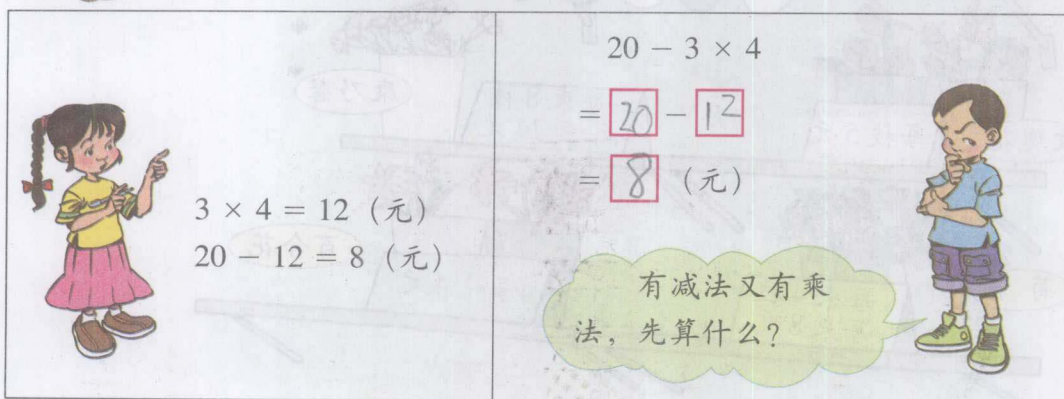 3 × 4 = 12（元）
20 − 12 = 8（元）
20 − 3 × 4
= 20 − 12
= 8（元）
有减法又有乘
法，先算什么？